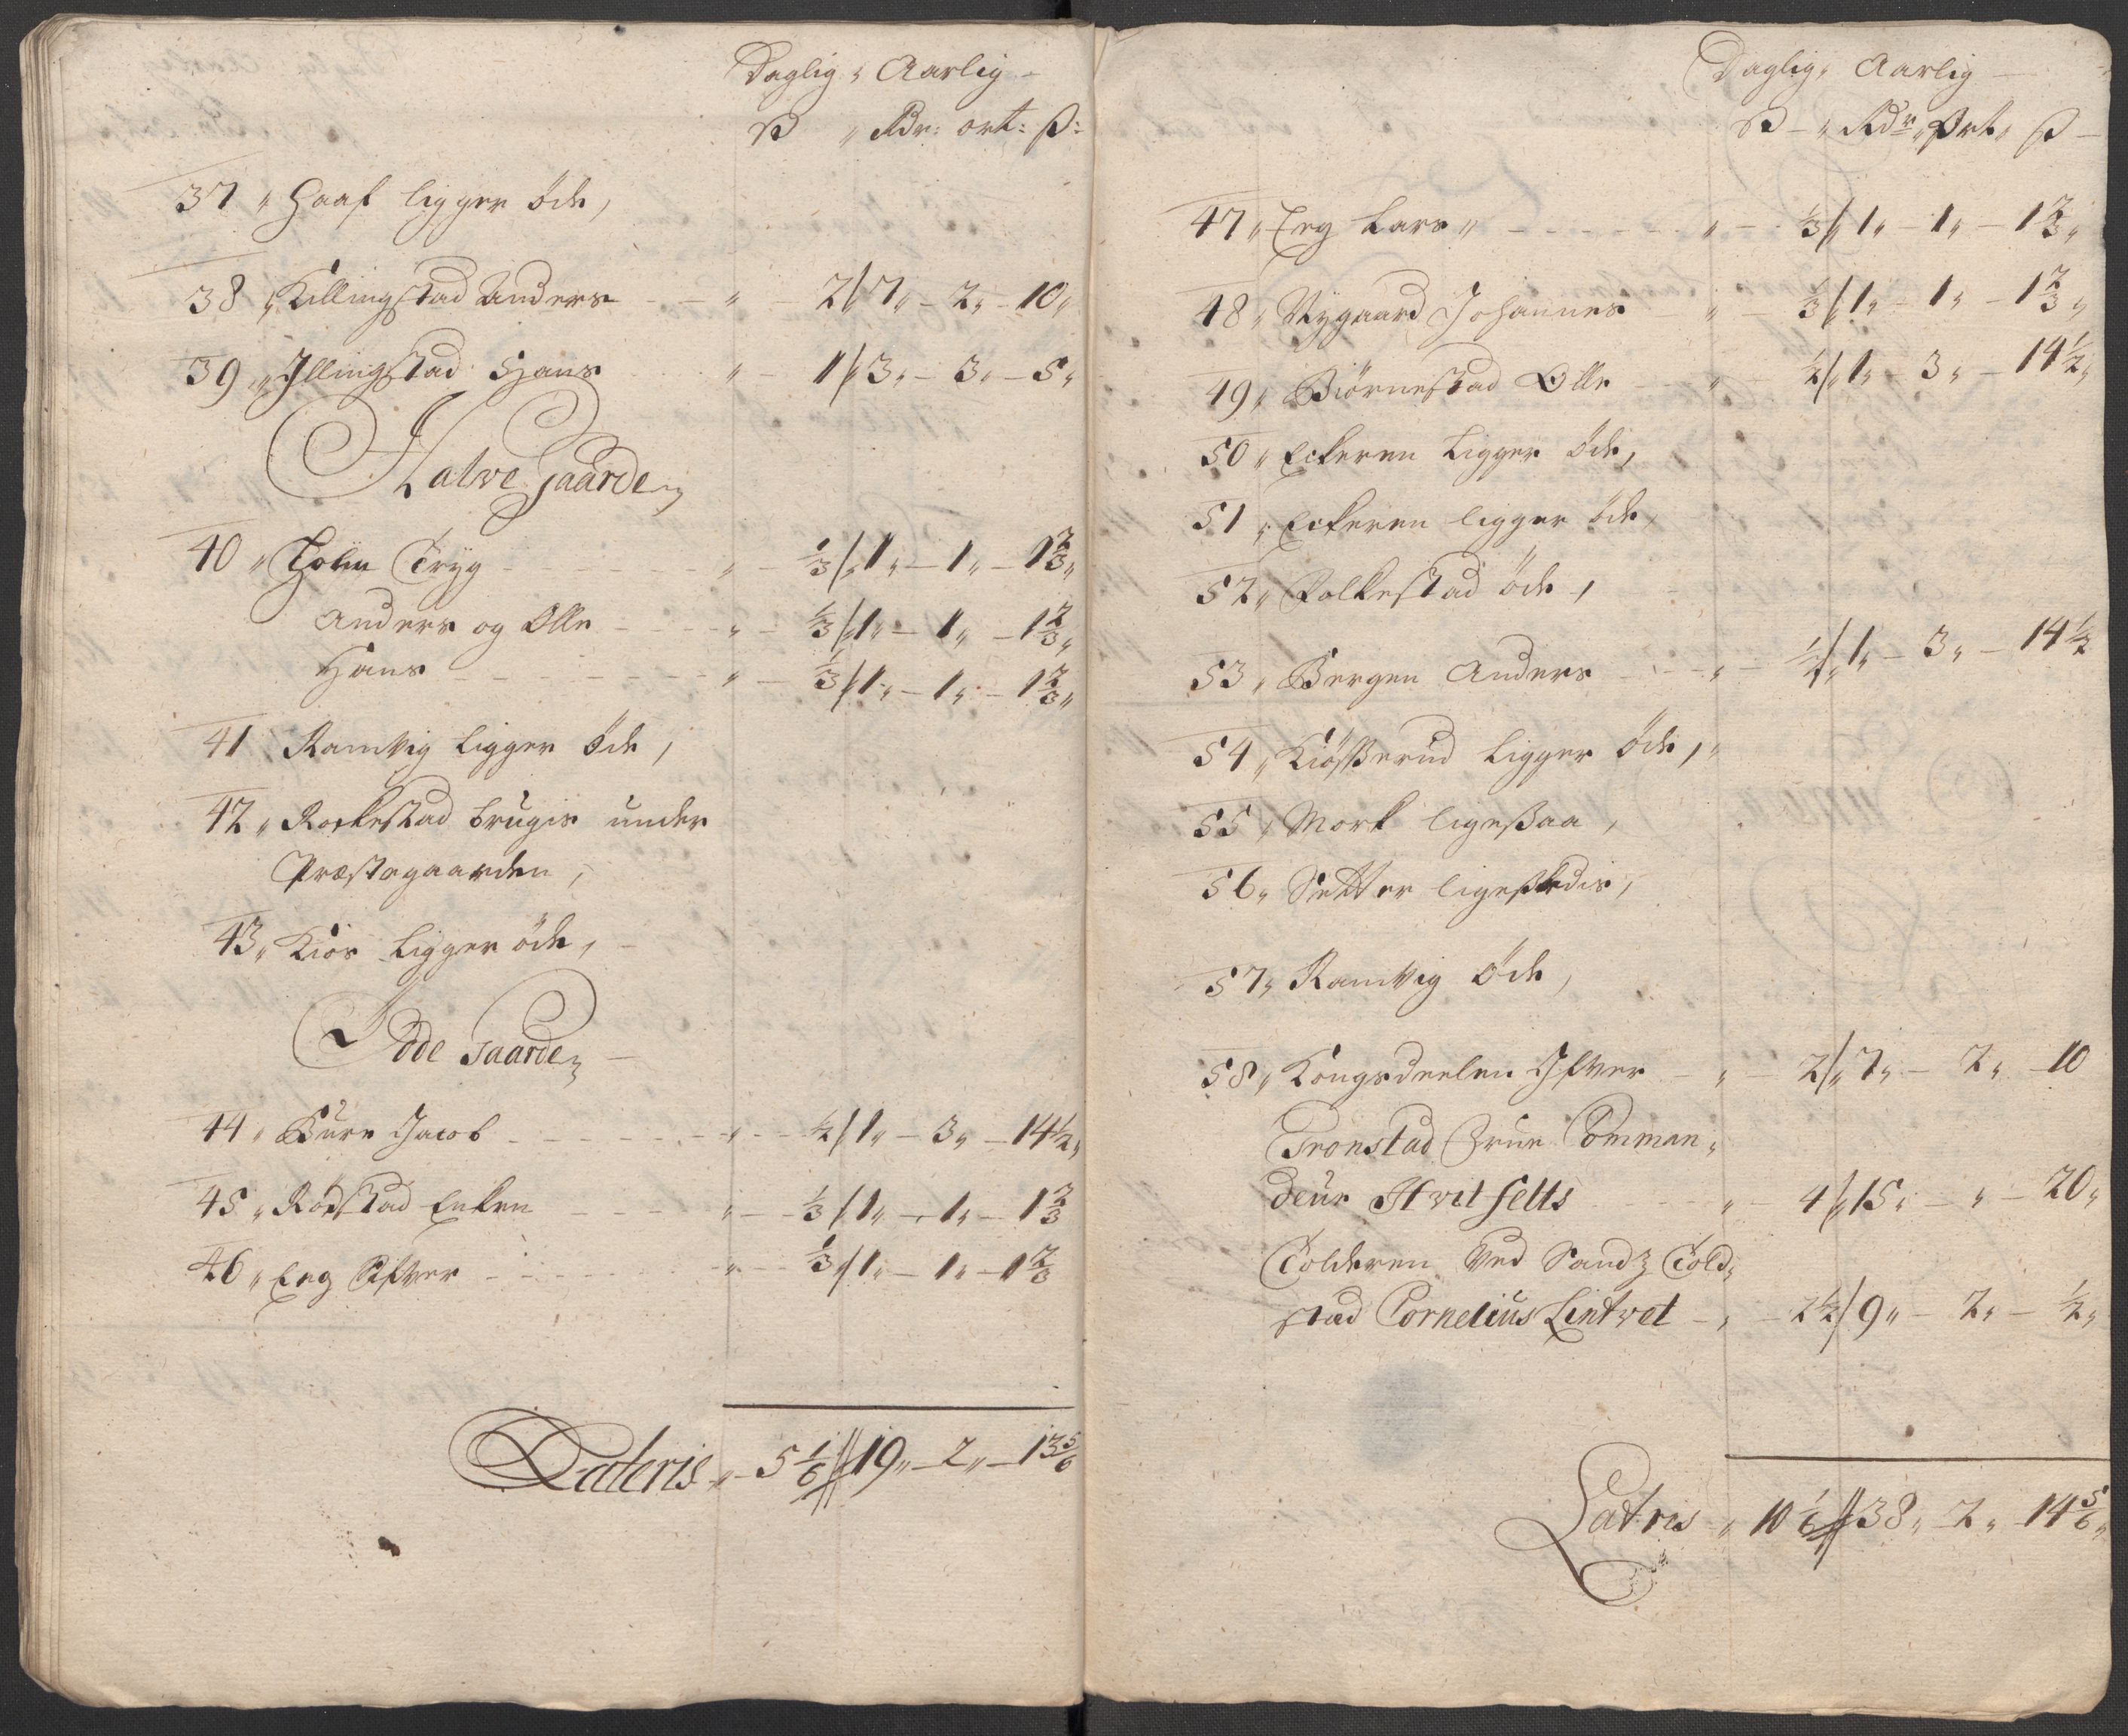 Daglig „ Aarlig –
ß „ Rdr: ort: ß:
37 „ Haaf ligger öde,
38 „ Killingstad Anders – – „ 2 // 7 „ – 2 „ – 10 „
39 „ Illingstad Hans „ – 1 // 3 „ – 3 „ – 5 „
Halve Gaarder
40 „ Holm Tryg – – – – „ – 1/3 // 1 „ – 1 „ – 1 2/3 „
Anders og Olle – – – „ – 1/3 // 1 „ – 1 „ – 1 2/3 „
Hans – – – – – „ – 1/3 // 1 „ – 1 „ – 1 2/3 „
41 Ramvig ligger Öde,
42 „ Rockestad brugis under
Præstegaarden,
43 „ Kiös ligger öde, –
Øde Gaarder –
44 „ Bure Jacob – – – – „ – – 1/2 // 1 „ – 3 „ – 14 1/2 „
45 „ Rödstad Enken – – – „ – – 1/3 // 1 „ – 1 „ – 1 2/3
46 „ Eeg Sifver – – – „ – – 1/3 // 1 „ – 1 „ – 1 2/3
Lateris „ – 5 1/6 // 19 „ – 2 „ – 13 5/6
Daglig „ Aarlig –
ß – „ Rdr „ Ort „ ß –
47 „ Eeg Lars „ – – – – „ – 1/3 // 1 „ – 1 „ – 1 2/3 „
48 „ Nygaard Johannes „ 1/3 // 1 „ – 1 „ – 1 2/3 „
49 „ Biörnestad Olle – „ – 1/2 // 1 „ – 3 „ – 14 1/2 „
50 „ Eckeren Ligger öde,
51 „ Eckeren ligger öde,
52 „ Folkestad öde,
53 „ Bergen Anders – – „ – 1/2 // 1 „ – 3 „ – 14 1/2
54 „ Kiößerud Ligger öde, „
55 „ Mork ligeßaa,
56 „ Setter ligeßedis,
57 „ Ramvig öde,
58 „ Kongsdeelen Ifver – „ – 2 // 7 „ – 2 „ – 10
Tronstad Frue Comman „
deur Hvitfelts „ – 4 // 15 „ – „ – 20 „
Tolderen Ved Sandz Told „
stad Cornelius Lintvet – „ – 2 1/2 // 9 „ – 2 „ – 1/2 „
Latris „ 10 1/6 // 38 „ 2 „ 14 5/6 „